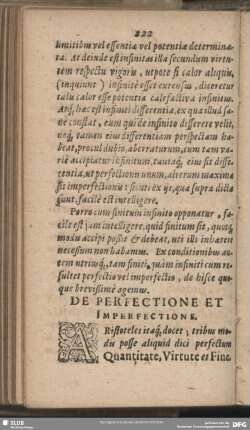 222
limitibus vel essentiæ vel potentiæ determina-
ta. At deinde est infinitas illa secundum virtu-
tem respectu vigoris, utpote si calor aliquis,
(inquiunt) infinite esset extensus, diceretur
talis calor esse potentia calefactiva infinitus.
Atq; hæc est infiniti differentia, ex qua illud sa-
ne constat, eum qui de infinito differere velit,
neq; tamen ejus differentiam perspectam ha-
beat, procul dubio, aberraturum, cum tam va-
rie accipiatur infinitum, tantaq; ejus sit diffe-
rentia, ut perfectionem unum, alterum maxima
sit imperfectionis: sicuti ex ijs, quæ supra dicta
sunt, facile est intelligere.
Porro cum finitum infinito opponatur, fa-
cile est jam intelligere, quid finitum sit, quotq;
modis accipi possit & debeat, uti illi inhærere
necessum non habeamus. Ex conditionibus au-
tem utriusq; tam finiti, quam infiniti cum re-
sultet perfectio vel imperfectio, de hisce quo-
que brevissime agemus.
DE PERFECTIONE ET
IMPERFECTIONE.
ARistoteles itaq; docet, tribus mo-
dis posse aliquid dici perfectum
Quantitate, Virtute et Fine.
SLUB